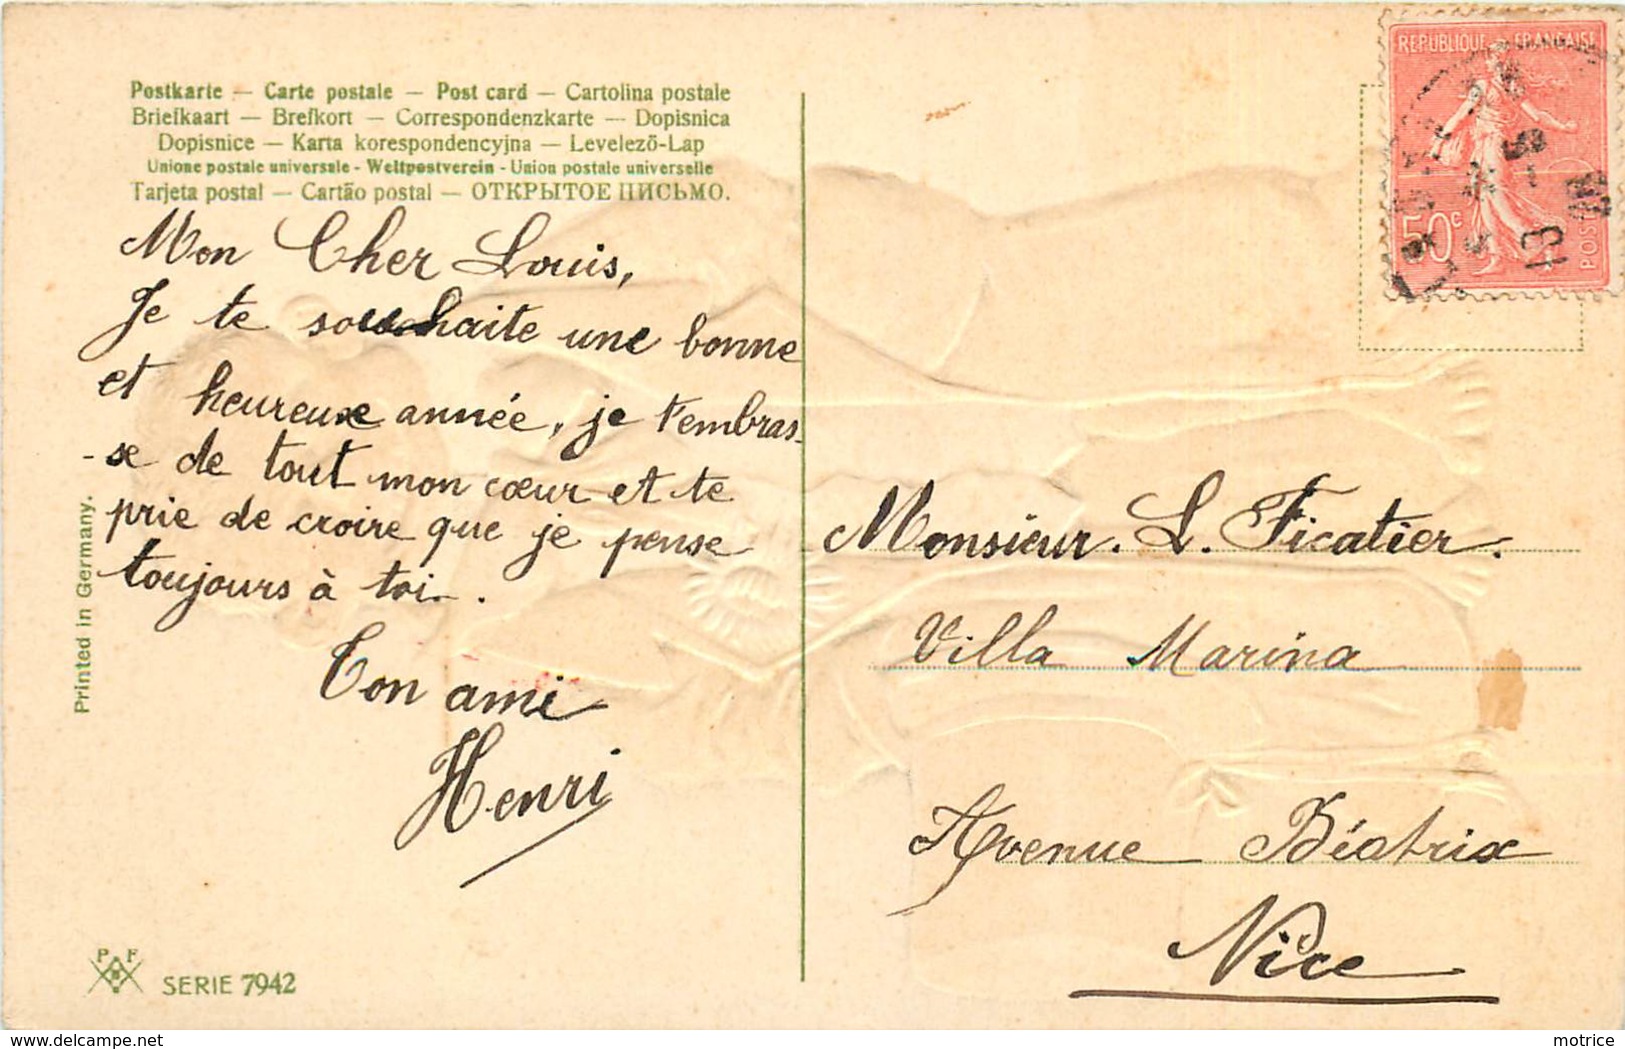 Postkarte — Carte postale — Post card — Cartolina postale
Briefkaart — Brefkort — Correspondenzkarte — Dopisnica
Dopisnice — Karta korespondencyjna — Levelező-Lap
Unione postale universale - Weltpostverein - Union postale universelle
Tarjeta postal — Cartão postal — ОТКРЫТОЕ ПИСЬМО.
Mon Cher Louis,
Je te souhaite une bonne
et heureuse année, je t'embras-
-se de tout mon cœur et te
prie de croire que je pense
toujours à toi.
Ton ami
Henri
Printed in Germany.
P F
SERIE 7942
REPUBLIQUE FRANÇAISE
50c
POSTES
Monsieur. L. Ficatier.
Villa Marina
Avenue Béatrix
Nice
motrice